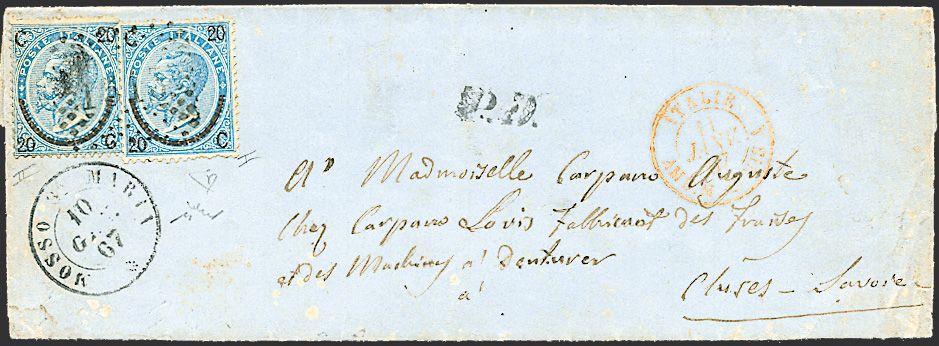 C 20 C 20
POSTE ITALIANE POSTE ITALIANE
20 C 20 C
P.D.
ITALIE
11
JANV
MOSSO Sta MARIA
10
GEN
67
A Madmoiselle Carpano Auguste
Chez Carpano Louis Fabbricant des Fraises
et des Machines à Denturer
à
Cluses - Savoie